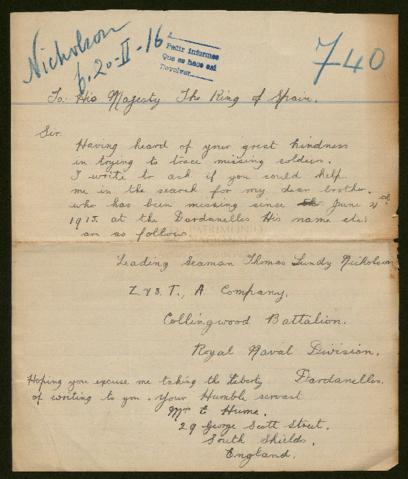 Nicholson
p. 20-II-16
Pedir informes
Que se hace así
Devolver
740
To His Majesty The King of Spain.
Sir.
Having heard of your great kindness
in trying to trace missing soldiers.
I write to ask if you could help
me in the search for my dear brother.
who has been missing since June
1915. at the Dardanelles His name
are as follow
Leading Seaman Thomas Lundy Nicholson
T., A Company.
Collingwood Battalion.
Royal Naval Division.
Dardanelles.
Hoping you excuse me taking the liberty
of writing to you. Your Humble servant
Mrs E Hume.
29 George Scott Street.
South Shields.
England.